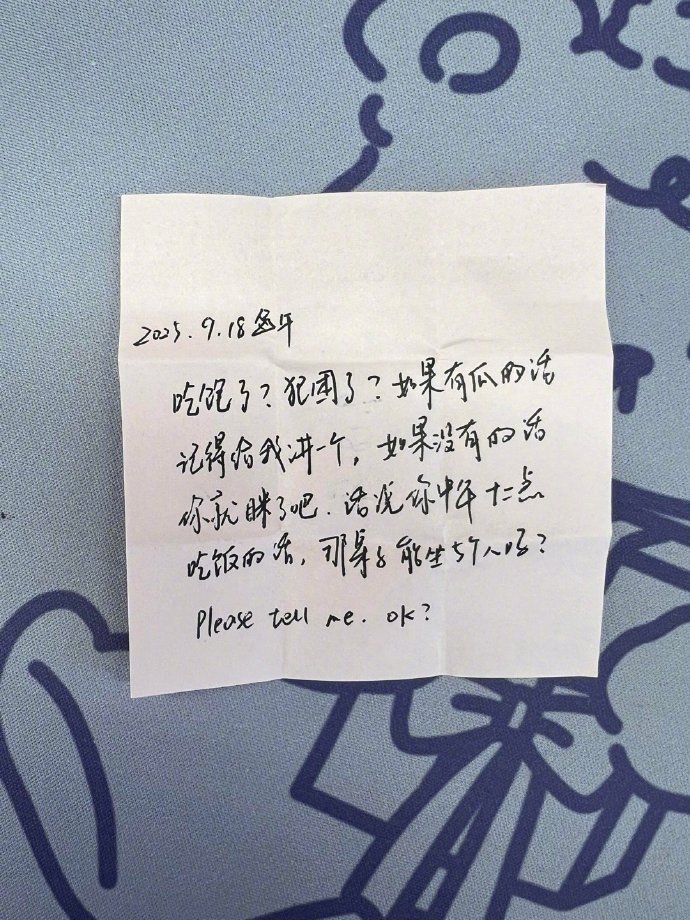 2025.9.18 下午
吃饱了？犯困了？如果有瓜的话
记得给我讲一个，如果没有的话
你就眯了吧．话说你中午十二点
吃饭的话，那桌子能坐5个人吗？
Please tell me. ok?